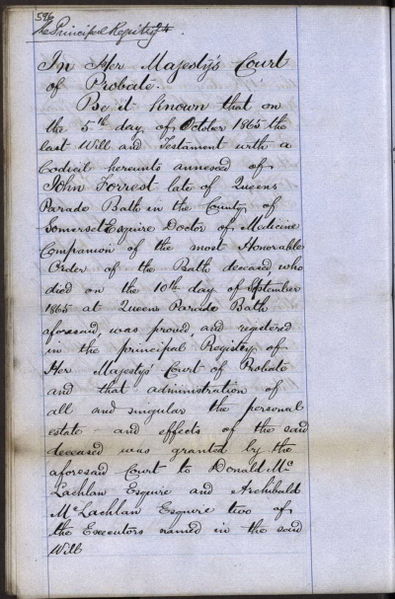 596
The Principal Registry
In Her Majesty's Court
of Probate.
Be it Known that on
the 5th day of October 1865 the
last Will and Testament with a
Codicil hereunto annexed of
John Forrest late of Queens
Parade Bath in the County of
Somerset Esquire Doctor of Medicine
Companion of the most Honorable
Order of the Bath deceased, who
died on the 10th day of September
1865 at Queens Parade Bath
aforesaid, was proved, and registered
in the principal Registry of
Her Majesty's Court of Probate
and that administration of
all and singular the personal
estate and effects of the said
deceased was granted by the
aforesaid Court to Donald Mc
Lachlan Esquire and Archibald
McLachlan Esquire two of
the Executors named in the said
Will